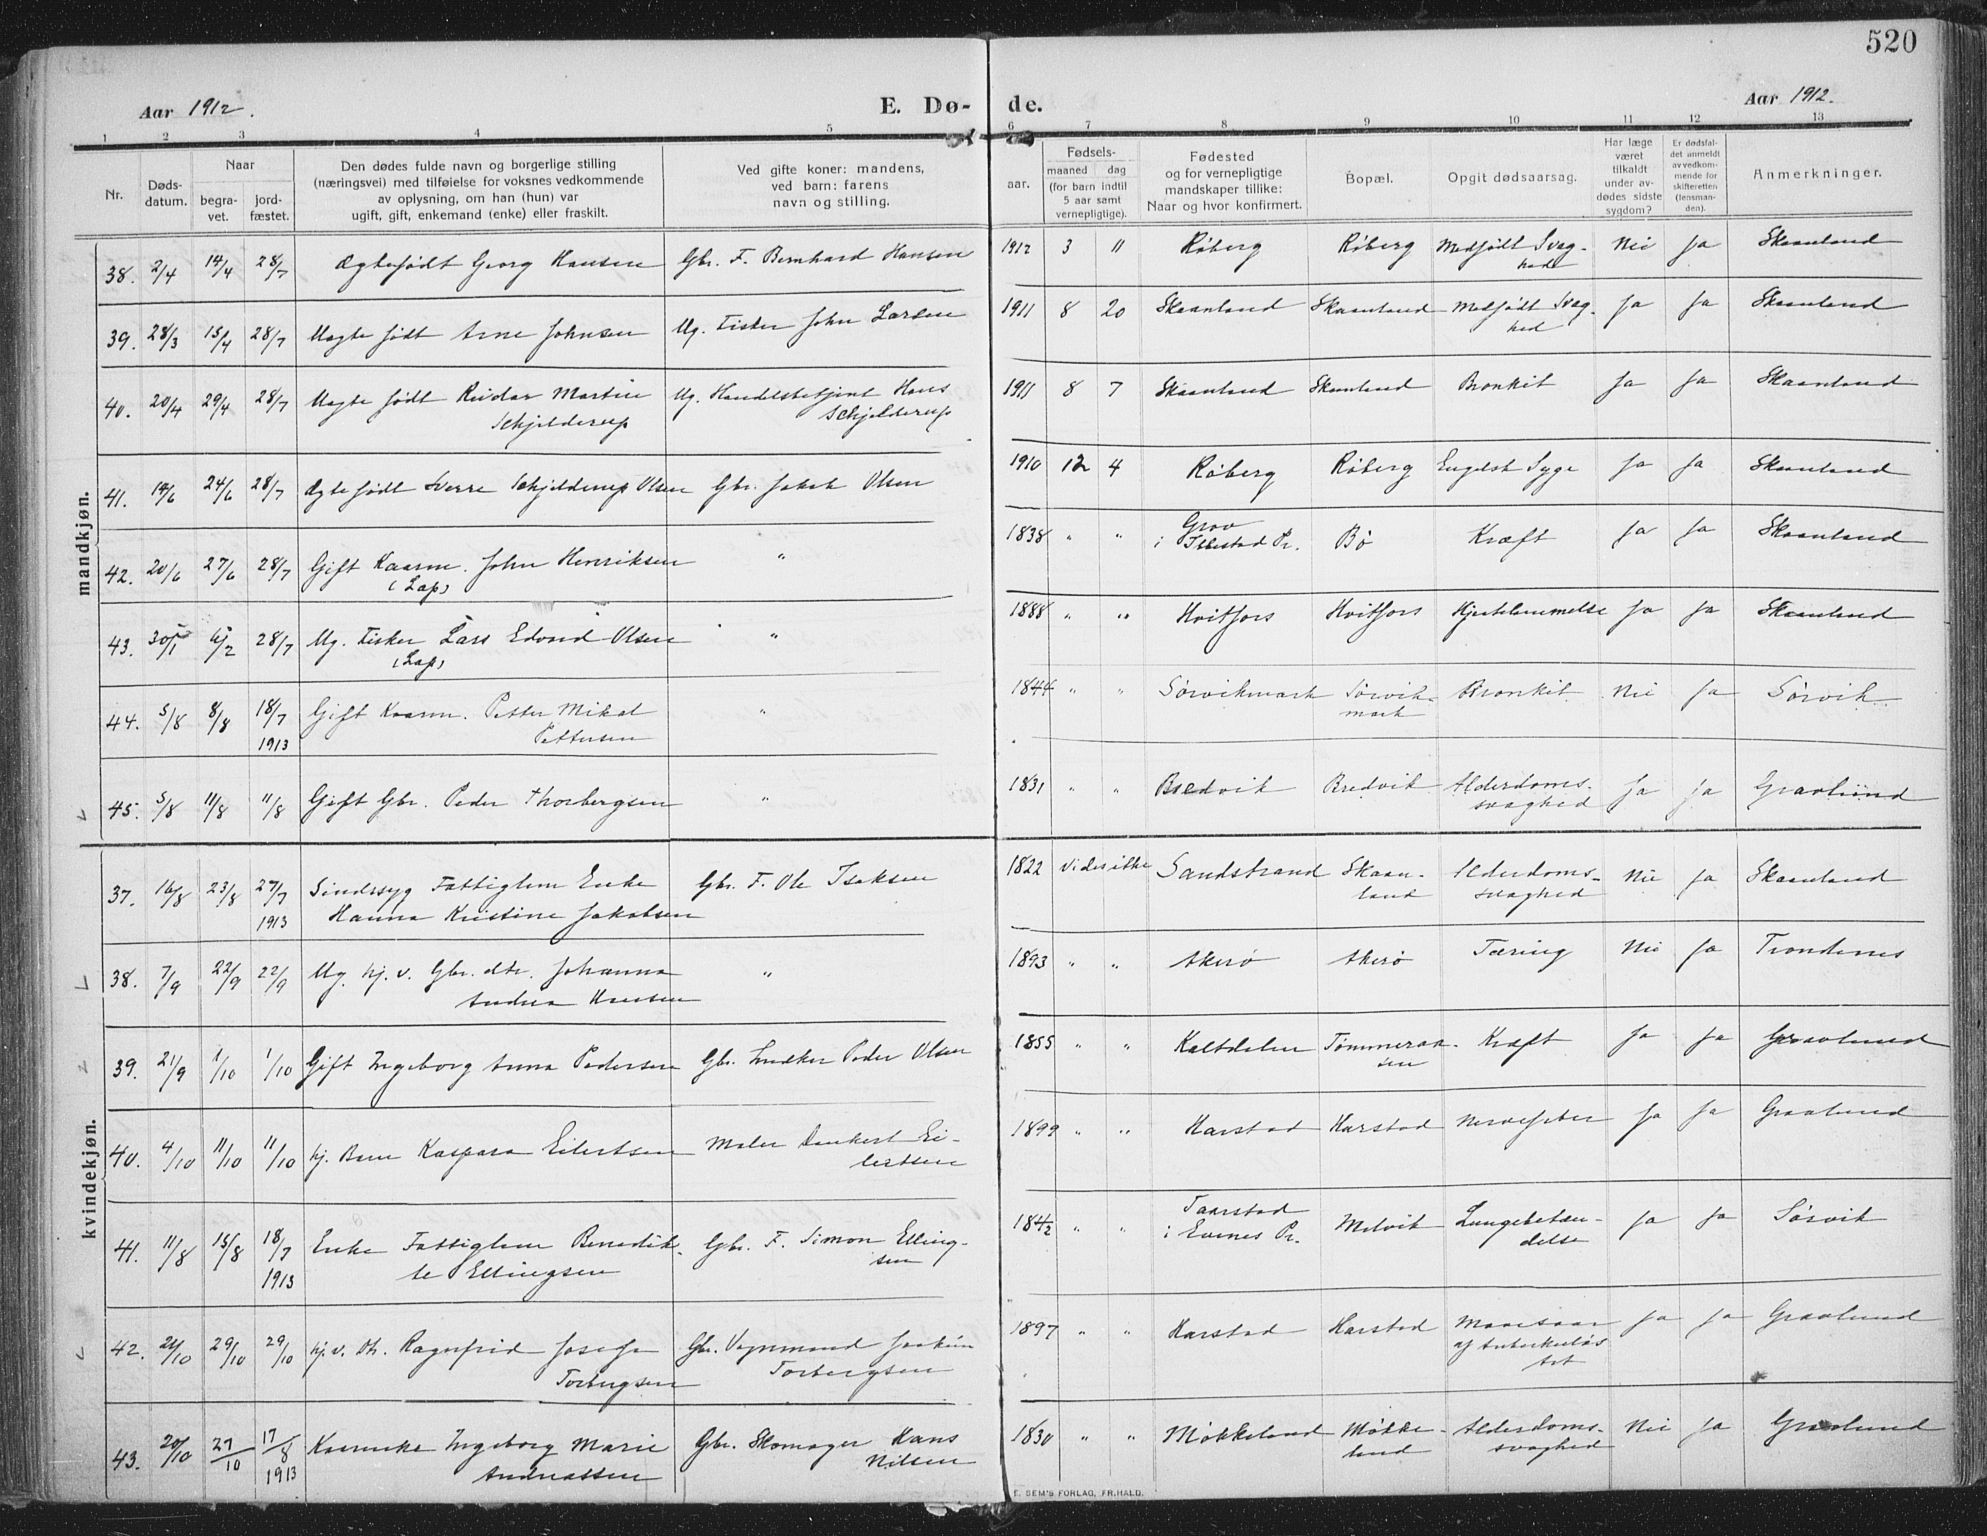 520
Aar 1912.
E. Dø-
de.
Aar 1912.
1 2 3 4 5 6 7 8 9 10 11 12 13
Nr.
Døds-
datum.
Naar
begra-
vet.
jord-
fæstet.
Den dødes fulde navn og borgerlige stilling
(næringsvei) med tilføielse for voksnes vedkommende
av oplysning, om han (hun) var
ugift, gift, enkemand (enke) eller fraskilt.
Ved gifte koner: mandens,
ved barn: farens
navn og stilling.
Fødsels-
aar.
maaned dag
(for barn indtil
5 aar samt
vernepligtige).
Fødested
og for vernepligtige
mandskaper tillike:
Naar og hvor konfirmert.
Bopæl.
Opgit dødsaarsag.
Har læge
været
tilkaldt
under av-
dødes sidste
sygdom?
Er dødsfal-
det anmeldt
av vedkom-
mende for
skifteretten
(lensman-
den).
Anmerkninger.
mandkjøn.
38. 2/4 14/4 28/7 Ægtefødt Georg Hansen Gbr. F. Bernhard Hansen 1912 3 11 Røberg Røberg Medfødt Svag- Nei Ja Skaanland
hed
39. 28/3 15/4 28/7 Uægte født Arne Johnsen Ug. Fisker John Larsen 1911 8 20 Skaanland Skaanland Medfødt Svag- Ja Ja Skaanland
hed
40. 20/4 29/4 28/7 Uægte født Reidar Martin Ug. Handelsbetjent Hans 1911 8 7 Skaanland Skaanland Bronkit Ja Ja Skaanland
Schjelderup Schjelderup
41. 14/6 24/6 28/7 Ægte født Sverre Schjelderup Olsen Gbr. Jakob Olsen 1910 12 4 Røberg Røberg Engelsk Syge Ja Ja Skaanland
42. 20/6 27/6 28/7 Gift Kaarm. John Henriksen " 1838 " " Grov Bø Kræft Ja Ja Skaanland
(Lap) i Ibbestad Pr.
43. 30/1 6/2 28/7 Ug. Fisker Lars Edvard Olsen " 1888 " " Hvitfors Hvitfors Hjertelammelse Ja Ja Skaanland
(Lap)
44. 5/8 8/8 18/7 Gift Kaarm. Petter Mikal " 1844 " " Sørvikmark Sørvik- Bronkit Nei Ja Sørvik
1913 Pettersen mark
45. 5/8 11/8 11/8 Gift Gbr. Peder Thorbergsen " 1831 " " Bredvik Bredvik Alderdoms- Ja Ja Gravlund
svaghed
kvindekjøn.
37. 16/8 23/8 27/7 Sindssyg Fattiglem Enke Gbr. F. Ole Isaksen 1822 Vides ikke Sandstrand Skaan- Alderdoms- Nei Ja Skaanland
1913 Hanna Kristine Jakobsen land svaghed
38. 7/9 22/9 22/9 Ug. hj. v. Gbr. dtr. Johanna " 1893 " " Akerø Akerø Tæring Nei Ja Trondenes
Andrea Hansen
39. 21/9 1/10 1/10 Gift Ingeborg Anna Pedersen Gbr. Snedker Peder Olsen 1855 " " Kaltdalen Tømmeraa- Kræft Ja Ja Gravlund
sen
40. 4/10 11/10 11/10 hj. Barn Kaspara Eilertsen Maler Dankert Ei- 1899 " " Harstad Harstad Nervefeber Ja Ja Gravlund
lertsen
41. 11/8 15/8 18/7 Enke Fattiglem Benedik- Gbr. F. Simon Elling- 1842 " " Taarstad Melvik Lungebetæn- Ja Ja Sørvik
1913 te Ellingsen sen i Evenes Pr. delse
42. 21/10 29/10 29/10 hj. v. Dtr. Ragnfrid Josefa Gbr. Vognmand Joakim 1897 " " Harstad Harstad Mavesaar Ja Ja Gravlund
Torbergsen Torbergsen af tuberkuløs
Art
43. 20/10 27/10 17/8 Kaarenke Ingeborg Marie Gbr. Skomager Hans 1830 " " Møkkeland Møkke- Alderdoms- Nei Ja Gravlund
1913 Andreassen Nilsen land svaghed
E. SEM'S FORLAG, FR.HALD.